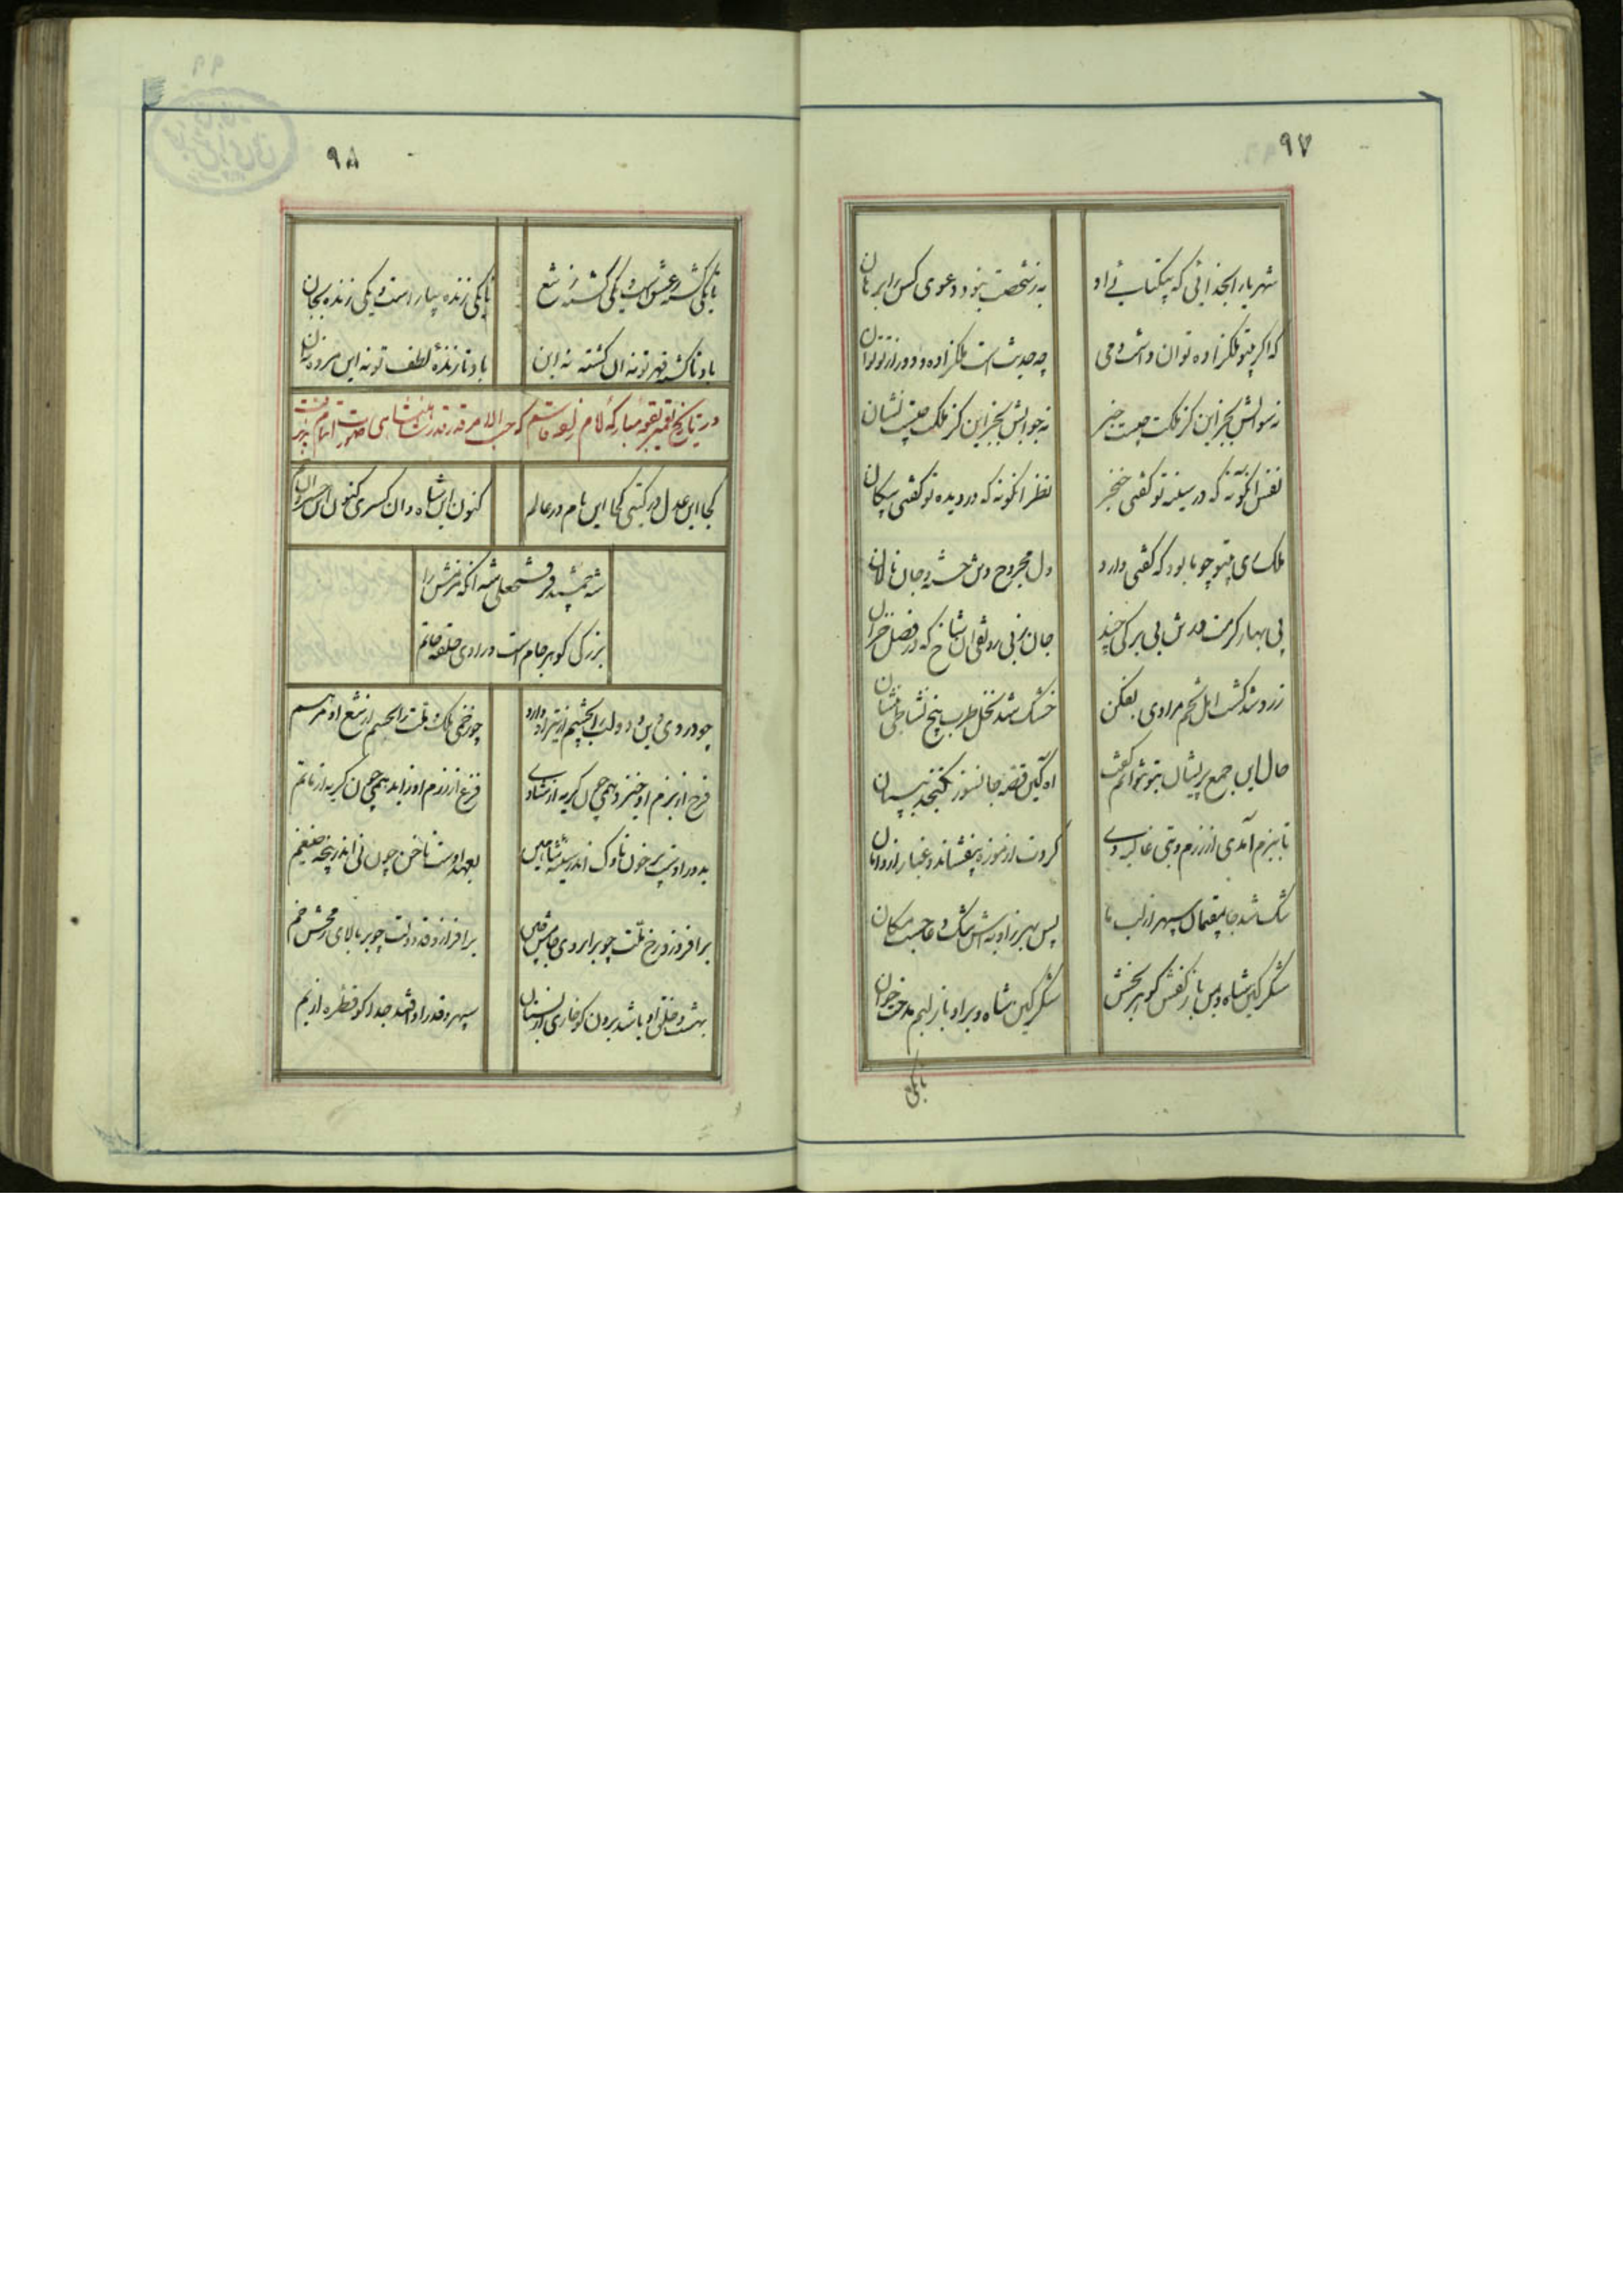 ۹۷
شهریارا بخدائی که بیکتائی او
به ز شخصت نبود دعوی کس را برهان
که اگر بتو ملکزاده توان داشت دمی
چه حدیث است ملکزاده و دور از تو توان
نه سوالش بجز این کز ملکت چیست خبر
نه جوابش بجز این کز ملکت چیست نشان
نفس انگونه که در سینه تو گفتی خنجر
نظر انگونه که در دیده تو گفتی پیکان
ملک ری بتو چونا بود که گفتی دارد
دل مجروح و تن خسته و جان نالان
بی بهار کرمت شد بی برگی چند
جان بزنی رونقی آن شاخ که در فصل خزان
زرد شد کشت امل تخم مرادی بفکن
خشک شد نخل طرب بیخ نشاطی بنشان
حال این جمع پریشان بتو نتوانم گفت
اه کاین قصه جانسوز نگنجد به بیان
تا ببزم آمدی از رزم و بتی غالیه موی
گردت از موزه بیفشاند و غبار از دامان
شک شد جایقمال سپهر از لب ما
پس بهرزاویه اش شک و عاجست مکان
شکر کاین شاه و من باز کفش گوهر بخش
شکر کاین شاه و براو باز لبم مدحت خوان
تا یکی
۹۸
تا یکی کشته ز عشق است و یکی کشته ز تیغ
تا یکی زنده بیار است و یکی زنده بجان
باد تا کشته قهر تو نه آن کشته نه این
باد تا زنده لطف تو نه این مرده نه آن
در تاریخ تعمیر بقعه مبارکه امام زاده قاسم که حسب الامر قدر قدرت شاهنشاهی صورت اتمام پذیرفت
کجا این عدل در گیتی کجا این نام در عالم
کنون این شاه و ان کسری کنون این خسرو ان جم
شه جمشید فر فتحعلی شه انکه عزمش را
بزرگی گوهر جام است و رادی حلقه خاتم
چو درد دین و دولت را بچشم از تیر او دارو
چو زخم ملک و ملت را بجسم از تیغ او مرهم
فرح از بزم او خیزد همی چون گریه از شادی
فزع از رزم او زاید همی چون گریه از ماتم
بدور اوست پر خون ناوک اندر سینه شاهین
بعهد اوست ناخن چون نی اندر پنجه ضیغم
برافروزد رخ ملت چو بر ابروی خامش چین
برافرازد قد دولت چو بر بالای رمحش خم
بهشت و خلق او باشد برون کو خاری از بستان
سپهر و قدر او افتد جدا کو قطره از یم